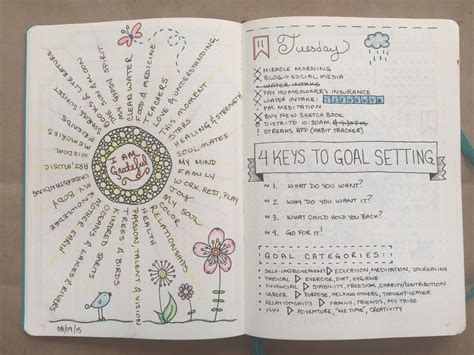 I AM
Grateful
CLEAN WATER
FOOD & MEDICINE
TEACHERS
LOVE & UNDERSTANDING
THIS MOMENT
STARS
HEALING & STRENGTH
SOUL MATES
MY MIND
FAMILY
WORK, REST, PLAY
JOY
MY SOUL
COLOR
RELATIONSHIPS
HEALTH
PASSION, TALENT & VISION
TREES & BIRDS
KINDRED SPIRITS
OCEANS & LAKES & RIVERS
MOTHER EARTH
KNOWLEDGE
MY BODY
UNDERSTANDING
ART, MUSIC
WISDOM
MEMORIES
SUNRISE, SUNSET
SUN & MOON
MY GYPSY SPIRIT
08/09/15
11
Tuesday
MIRACLE MORNING
BLOG → SOCIAL MEDIA
WATER INTAKE
PAY HOMEOWNER'S INSURANCE
WATER INTAKE:
PM MEDITATION
BUY NEW SKETCH BOOK
10:30AM
! STREAKS APP (HABIT TRACKER)
4 KEYS TO GOAL SETTING
~ 1. WHAT DO YOU WANT?
~ 2. WHY DO YOU WANT IT?
~ 3. WHAT COULD HOLD YOU BACK?
~ 4. GO FOR IT!
GOAL CATEGORIES:
SELF-IMPROVEMENT ▷ EDUCATION, MEDITATION, JOURNALING
PHYSICAL ▷ EXERCISE, DIET, HYGIENE
FINANCIAL ▷ STABILITY, FREEDOM, CHARITY/CONTRIBUTION
CAREER ▷ PURPOSE, HELPING OTHERS, THOUGHT-LEADER
RELATIONSHIPS ▷ FAMILY, FRIENDS, MY TRIBE
FUN ▷ ADVENTURE, "ME TIME", CREATIVITY